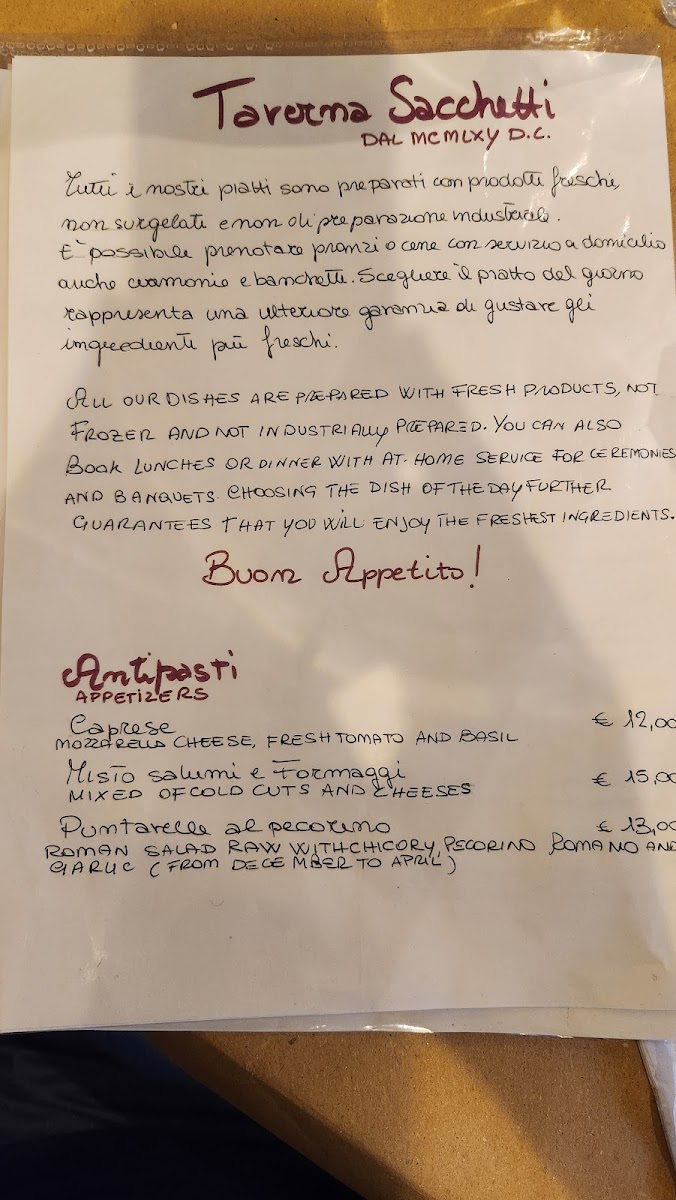 Taverna Sacchetti
DAL MCMLXV D.C.
Tutti i nostri piatti sono preparati con prodotti freschi,
non surgelati e non di preparazione industriale.
E' possibile prenotare pranzi o cene con servizio a domicilio
anche cerimonie e banchetti. Scegliere il piatto del giorno
rappresenta una ulteriore garanzia di gustare gli
ingredienti più freschi.
ALL OUR DISHES ARE PREPARED WITH FRESH PRODUCTS, NOT
FROZEN AND NOT INDUSTRIALLY PREPARED. YOU CAN ALSO
BOOK LUNCHES OR DINNER WITH AT-HOME SERVICE FOR CEREMONIES
AND BANQUETS. CHOOSING THE DISH OF THE DAY FURTHER
GUARANTEES THAT YOU WILL ENJOY THE FRESHEST INGREDIENTS.
Buon Appetito!
Antipasti
APPETIZERS
Caprese € 12,00
MOZZARELLA CHEESE, FRESH TOMATO AND BASIL
Misto salumi e Formaggi € 15,00
MIXED OF COLD CUTS AND CHEESES
Puntarelle al pecorino € 13,00
ROMAN SALAD RAW WITH CHICORY, PECORINO ROMANO AND
GARLIC (FROM DECEMBER TO APRIL)